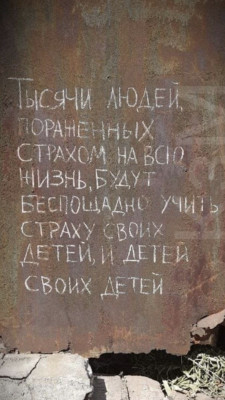 Тысячи людей,
пораженных
страхом на всю
жизнь, будут
беспощадно учить
страху своих
детей, и детей
своих детей